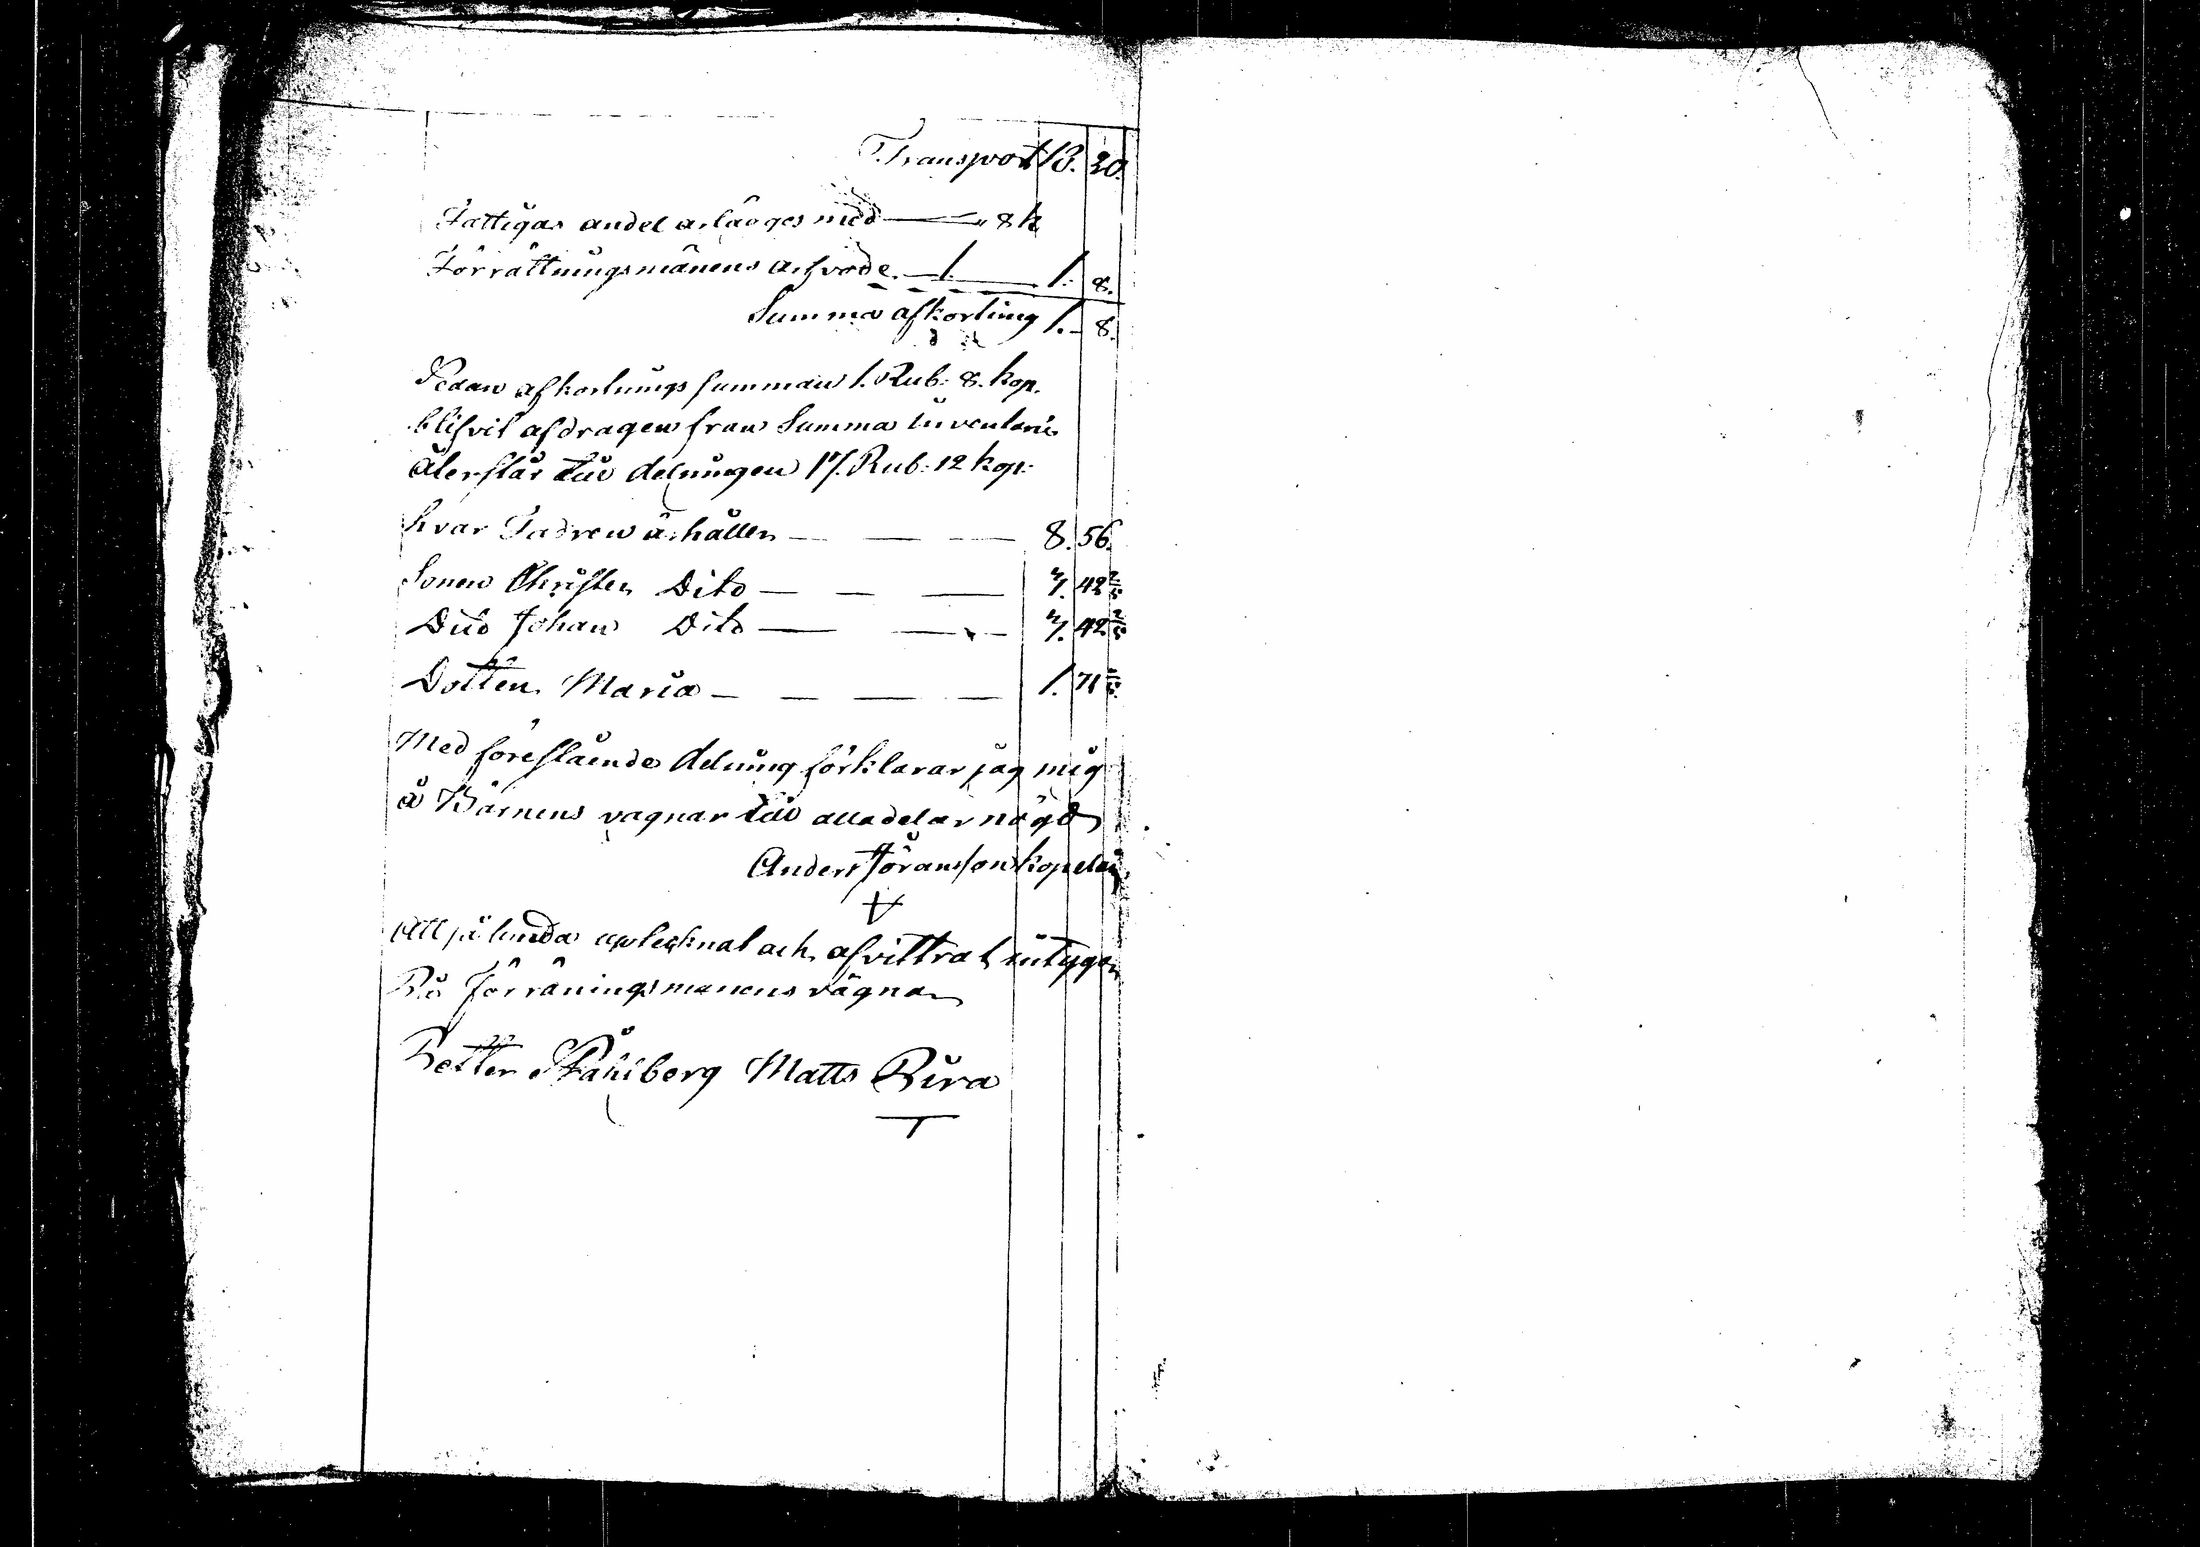 Transport 18. 20.
Fattigas andel aslägges med — „ 8 k
Förrättningsmänens arfvode. — 1. — 1. 8.
Summa afkortning 1. — 8.
Sedan afkortnings summan 1. Rub: 8. kop.
blifvit afdragen från Summa inventarie
återstår till delningen 17. Rub: 12 kop:
hvar Fadren ärhåller — — — 8. 56.
Sonen Christer Dito — — — 3. 42 2/5
Dito Johan Dito — — — 3. 42 2/5
Dotten Maria — — — — 1. 71
Med föreståände delning förklarar jag mig
å Barnens vägnar till alla delar nögd
Anders Göransson
Att så lunda upteknat och afvittrat intygar
På Förräningsmanens vägnar
Petter Ståhlberg Matts Pira